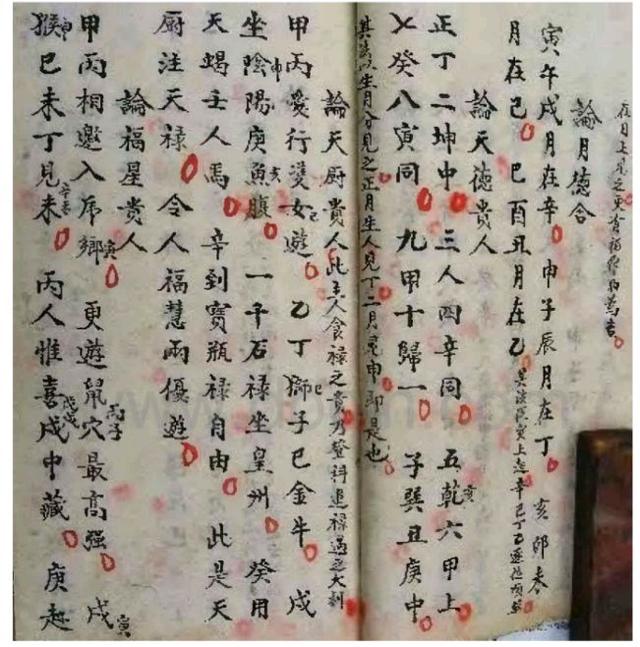 在月上見之更有福祿均為吉
論月德合
寅午戌月在辛 申子辰月在丁 亥卯未
月在己 巳酉丑月在乙 其法從寅上起辛己丁乙逐位
論天德貴人
正丁二坤中 三人四辛同 五乾亥六甲上
七癸八寅同 九甲十歸一 子巽丑庚中
其法以生月分見之正月生人見丁二月見申即是也
論天厨貴人此主人食祿之貴乃登科進祿遇之大利
甲丙愛行雙女遊 乙丁獅子巳金牛 戌
坐陰陽申庚魚腹亥 一千石祿坐皇州 癸用
天蝎壬人馬 辛到寶瓶祿自由 此是天
厨注天祿 令人福慧兩優遊
論福星貴人
甲丙相邀入虎鄉寅 更遊鼠穴最高強 戌
猴申巳未丁見未 丙人惟喜戌中藏 庚趁